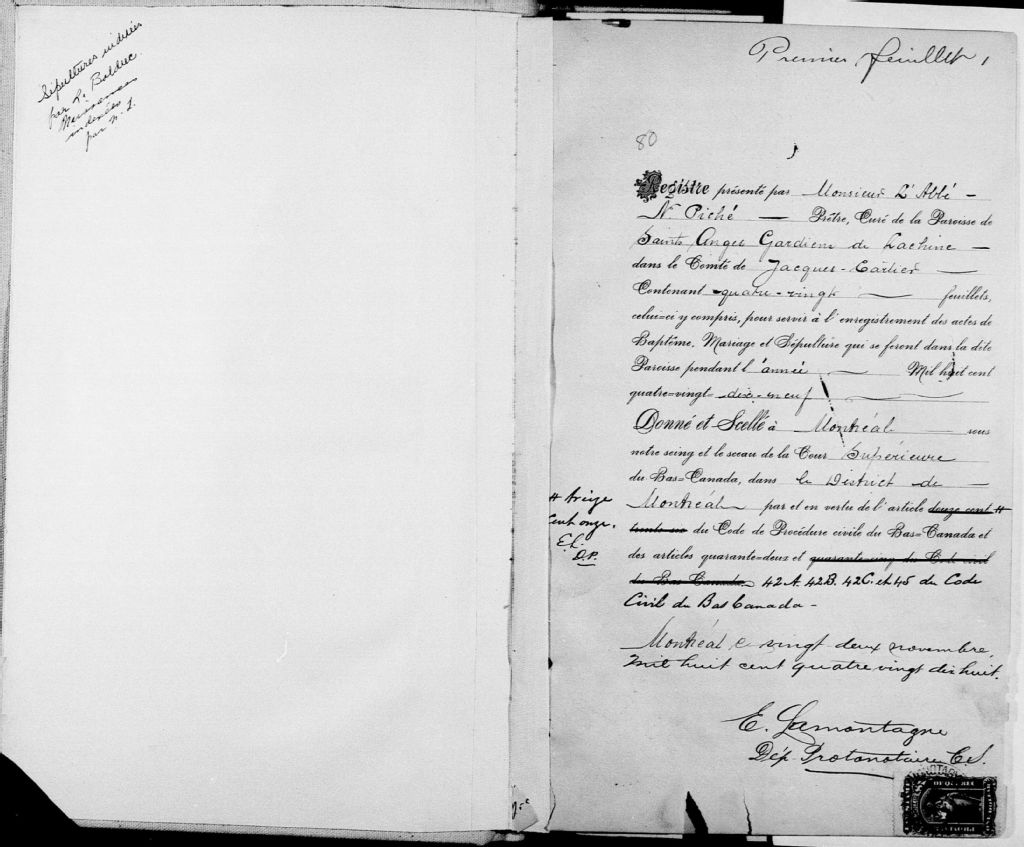 Sépultures indexées
par L. Balduc
Naissances
indexées
par N. L.
Premier feuillet 1
80
Registre présenté par Monsieur L'Abbé –
N. Piché — Prêtre, Curé de la Paroisse de
Saints Anges Gardiens de Lachine —
dans le Comté de Jacques-Cartier —
Contenant quatre-vingt — feuillets,
celui=ci y compris, pour servir à l'enregistrement des actes de
Baptême, Mariage et Sépulture qui se feront dans la dite
Paroisse pendant l'année — Mil huit cent
quatre=vingt= dix-neuf —
Donné et Scellé à Montréal — sous
notre seing et le sceau de la Cour Supérieure
du Bas=Canada, dans le District de —
Montréal par et en vertu de l'article douze cent #
trente-six du Code de Procédure civile du Bas=Canada et
# treize
cent onze.
E. L.
D.P.
des articles quarante=deux et quarante-cinq du Code civil
du Bas Canada. 42 A. 42B. 42C. et 45 du Code
Civil du Bas Canada –
Montréal ce vingt deux novembre,
Mil huit cent quatre vingt dix huit.
E. Lamontagne
Dép. Protonotaire C.S.